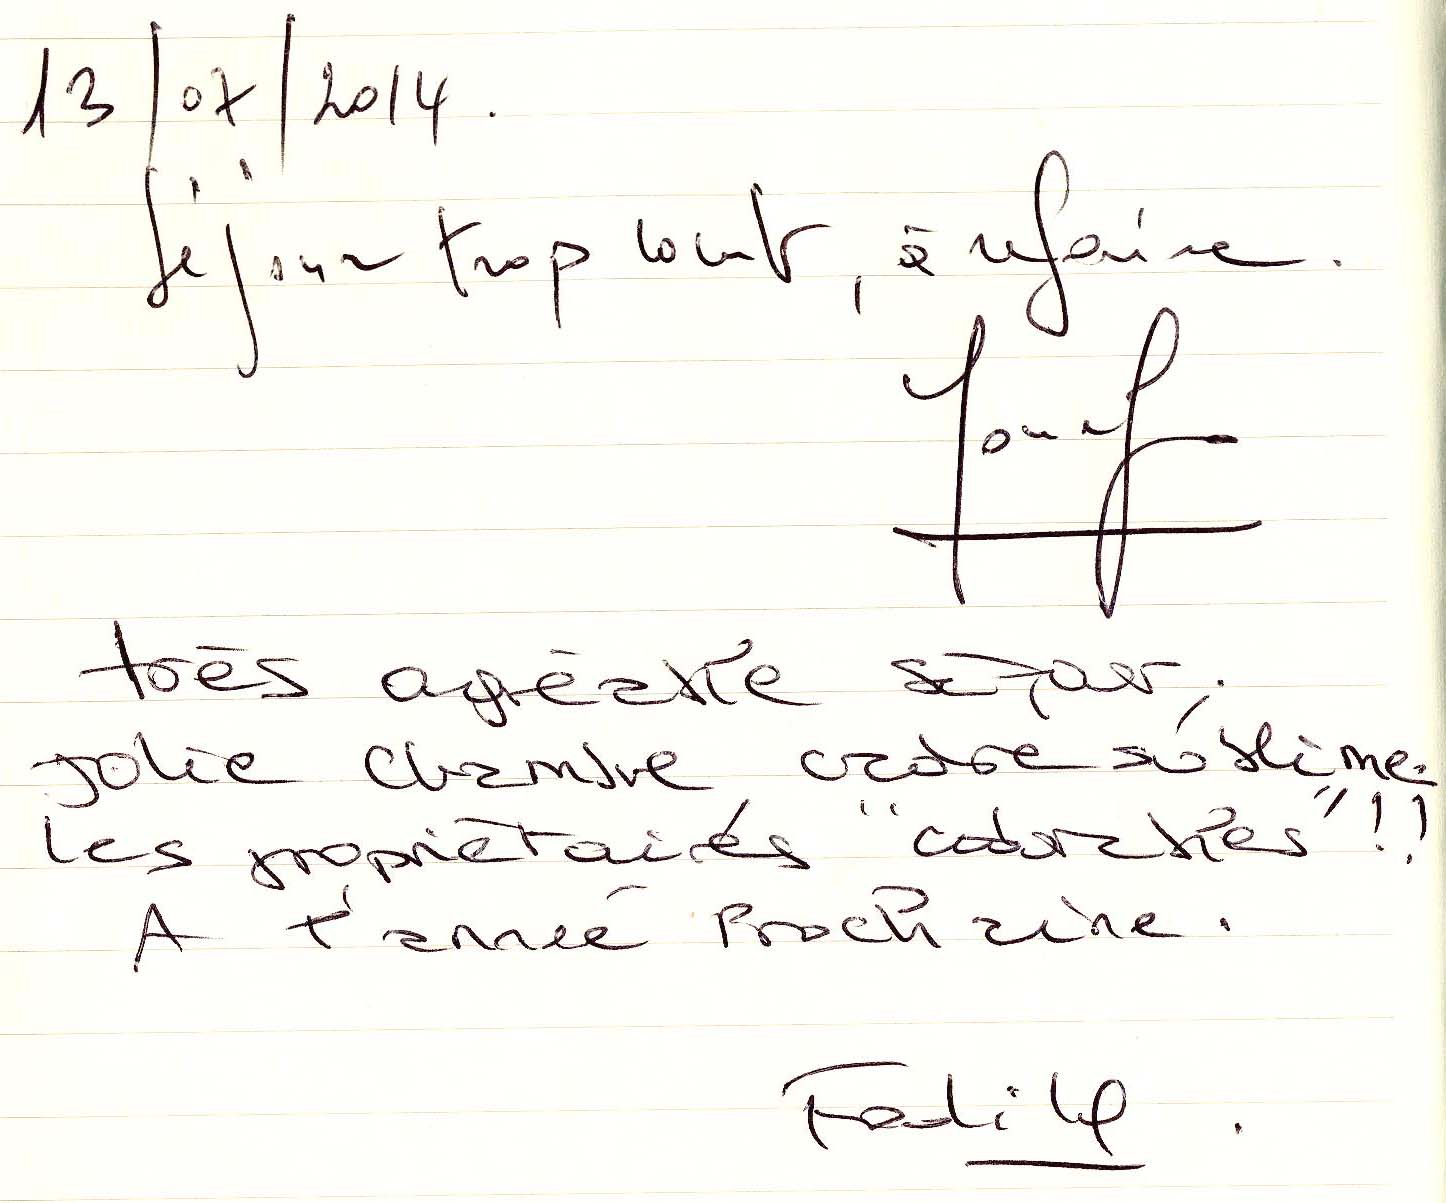 13/07/2014.
Séjour trop court, à refaire.
très agréable séjour,
jolie chambre, cadre sublime.
les propriétaires "adorables"!!
A l'année prochaine.